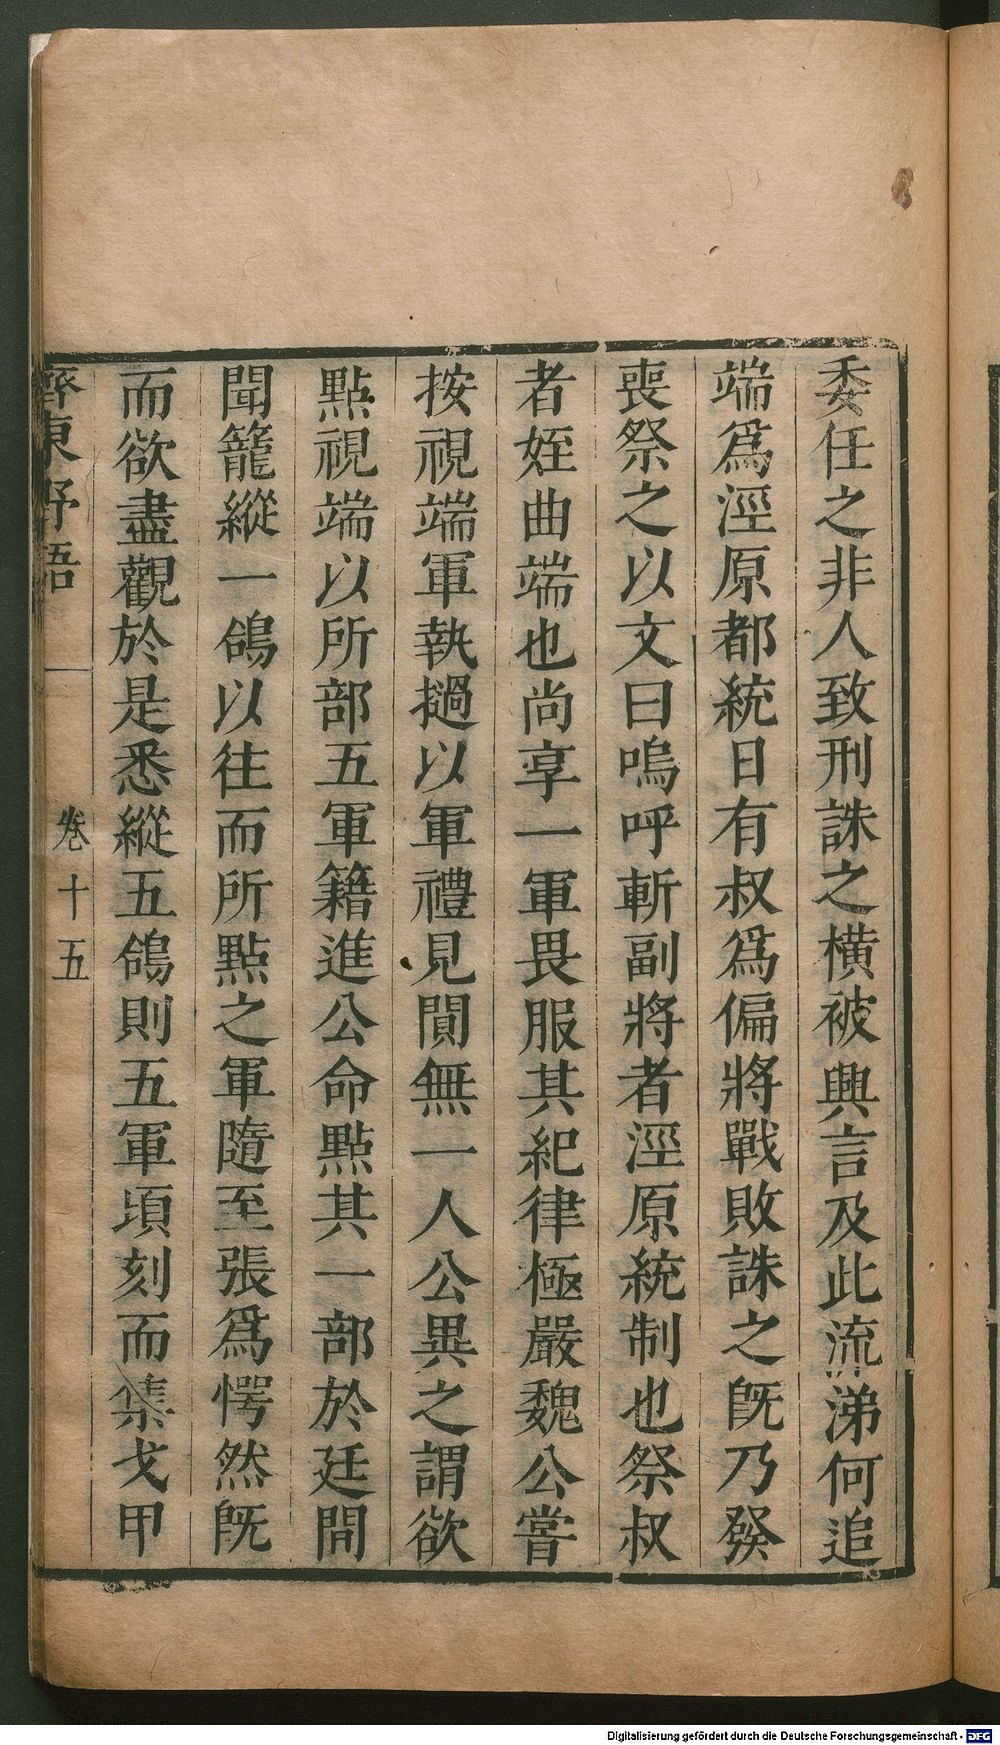 委任之非人致刑誅之橫被興言及此流涕何追
端爲涇原都統日有叔爲偏將戰敗誅之旣乃發
喪祭之以文曰嗚呼斬副將者涇原統制也祭叔
者姪曲端也尚享一軍畏服其紀律極嚴魏公嘗
按視端軍執撾以軍禮見闃無一人公異之謂欲
點視端以所部五軍籍進公命點其一部於廷間
開籠縱一鴿以往而所點之軍隨至張爲愕然旣
而欲盡觀於是悉縱五鴿則五軍頃刻而集戈甲
齊東野語
卷十五
Digitalisierung gefördert durch die Deutsche Forschungsgemeinschaft - DFG